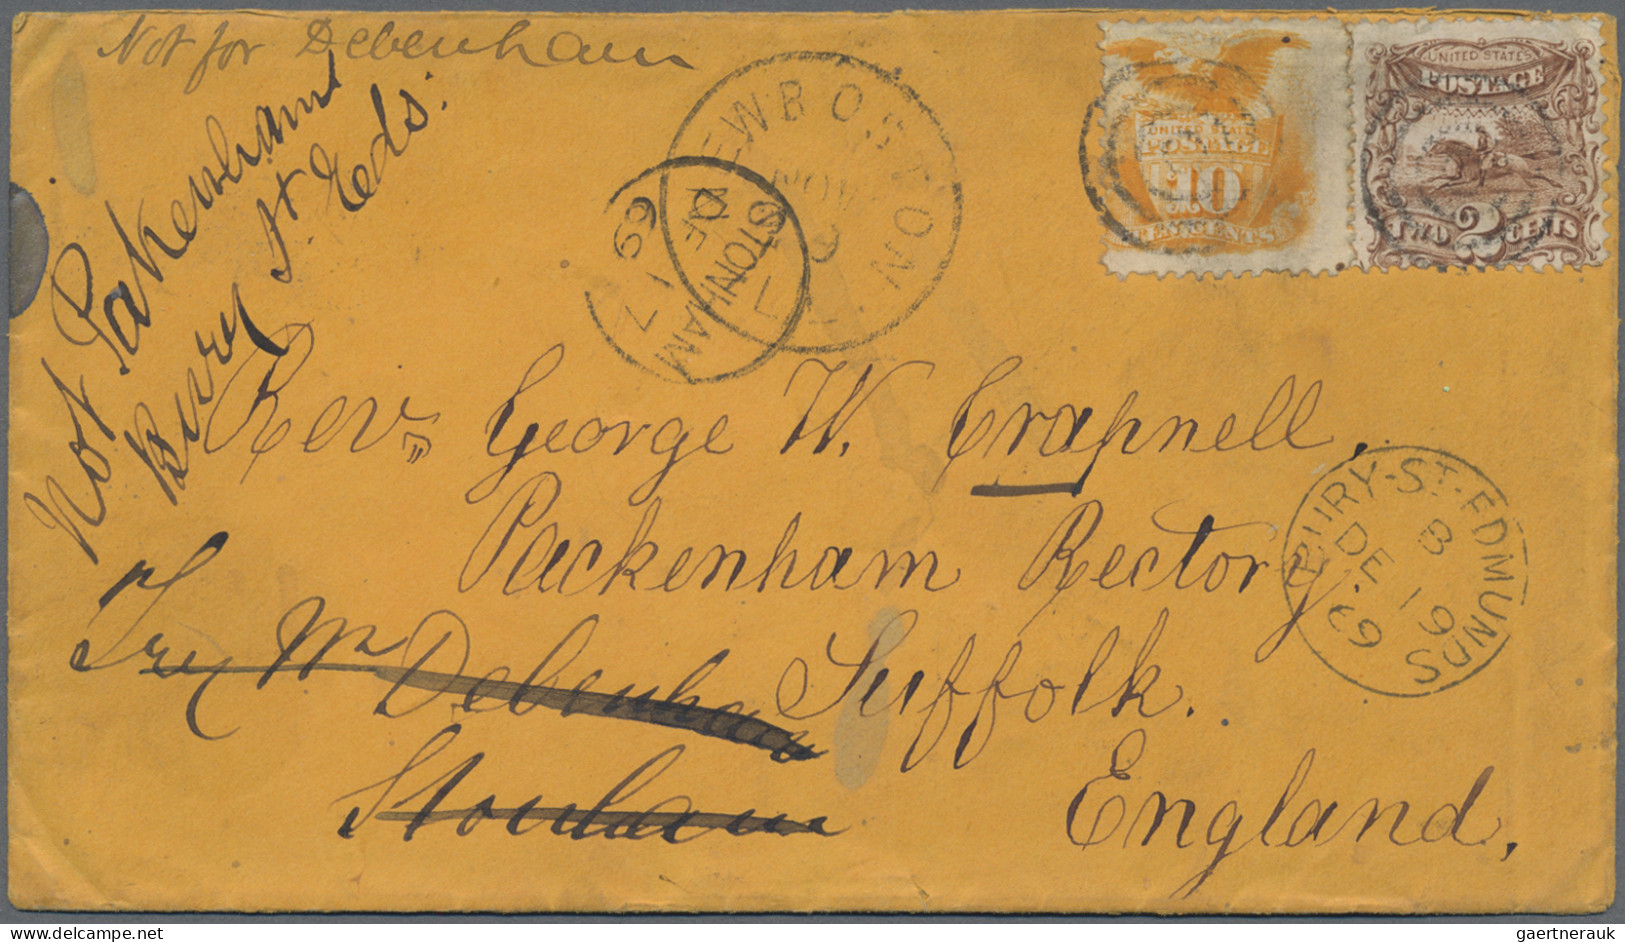 Not for Debenham
Not Pakenham
Bury St Eds:
NEW BOSTON
NOV
STONHAM
DE 17
69
UNITED STATES
POSTAGE
10
TEN CENTS
UNITED STATES
POSTAGE
TWO 2 CENTS
Rev. George W. Crapnell,
Packenham Rectory
Suffolk.
England.
Try Mr Debenham
Stonham
BURY-ST-EDMUNDS
B
DE 19
69
delcampe.net
gaertnerauk